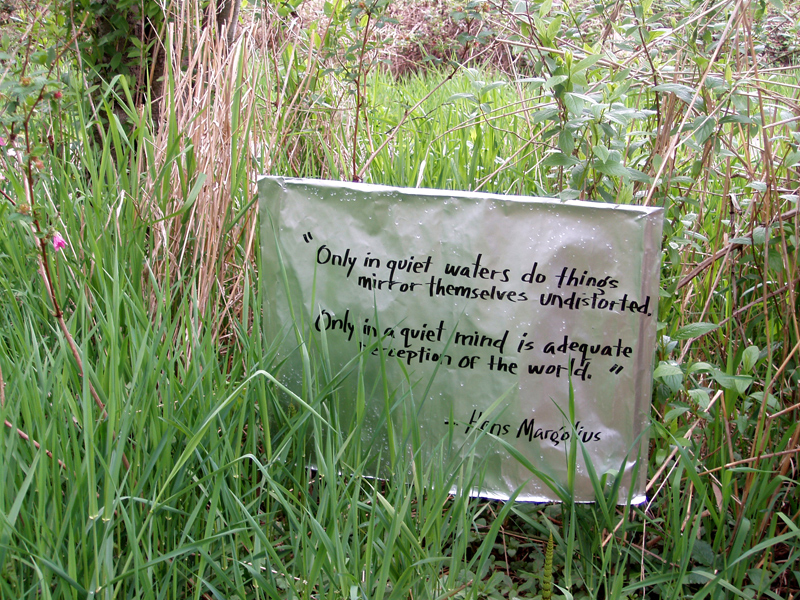 "Only in quiet waters do things
mirror themselves undistorted.
Only in a quiet mind is adequate
perception of the world."
- Hens Margolius